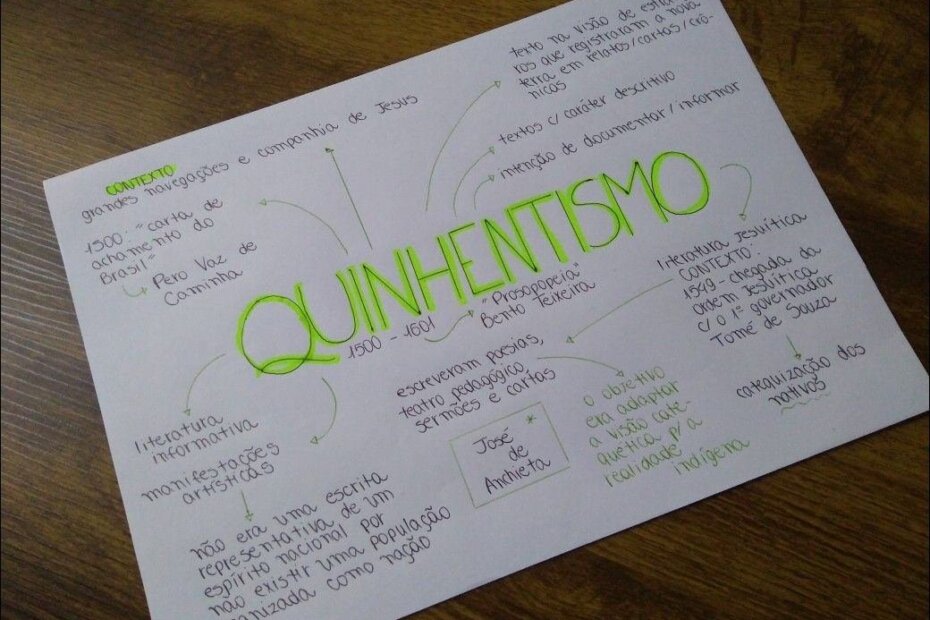 texto na visão de
ros que registraram a nova
terra em relatos/cartas/crô-
nicas
textos c/ caráter descritivo
intenção de documentar/informar
CONTEXTO
grandes navegações e companhia de Jesus
1500: "carta de
achamento do
Brasil"
Pero Vaz de
Caminha
QUINHENTISMO
1500 - 1601
"Prosopopeia"
Bento Teixeira
literatura jesuítica
CONTEXTO:
1549 - chegada da
Ordem Jesuítica
c/ o 1º governador
Tomé de Souza
catequização dos
nativos
escreveram poesias,
teatro pedagógico,
sermões e cartas
José
de
Anchieta
*
o objetivo
era adaptar
a visão cate-
quética p/ a
realidade
indígena
literatura
informativa
manifestações
artísticas
não era uma escrita
representativa de um
espírito nacional por
não existir uma população
ganizada como nação